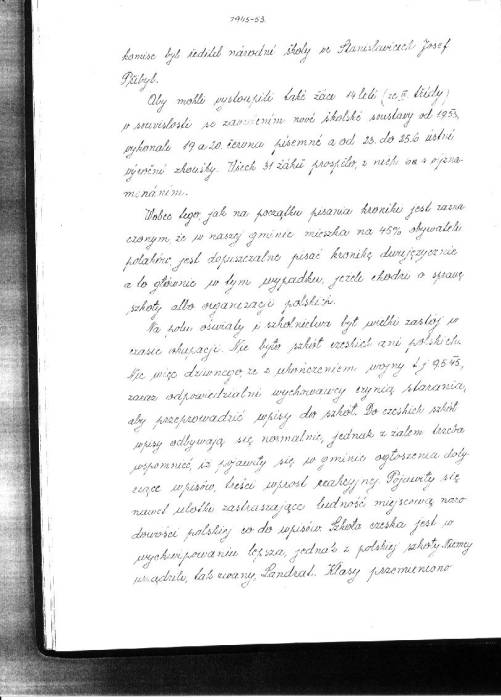 1945-53.
komise byl ředitel národní školy ve Stanislavicích Josef
Přibyl.
Aby mohli vystoupiti také žáci 14 letí (ze II. třídy)
v souvislosti se zavedením nové školské soustavy od 1953,
vykonale 19 a 20. června písemné a od 23. do 25.6 ústní
výroční zkoušky. Všech 31 žáků prospělo, z nich 4 s vyzna-
menáním.
Wobec tego, jak na początku pisania kroniki jest zazna
czonym że w naszej gminie mieszka na 45% obywateli
polaków, jest dopuszczalne pisać kronikę dwujęzycznie
a to głównie w tym wypadku, jeżeli chodzi o sprawę
szkoły albo organizacji polskich.
Na polu oświaty i szkolnictwa był wielki zastój w
czasie okupacji. Nie było szkół czeskich ani polskich.
Nic więc dziwnego, że z ukończeniem wojny t.j. 9.5.45,
zaraz odpowiedzialni wychowawcy czynią starania,
aby przeprowadzić wpisy do szkół. Do czeskich szkół
wpisy odbywają się normalnie, jednak z żalem trzeba
wspomnieć, iż pojawiły się w gminie ogłoszenia doty
czące wpisów, treści wprost reakcyjnej. Pojawiły się
nawet ulotki zastraszające ludność miejscową naro
dowości polskiej co do wpisów. Szkoła czeska jest w
wychwipowaniu lepsza, jednak z polskiej szkoły Niemcy
urządzili, tak zwany, Landrat. Klasy przemieniono